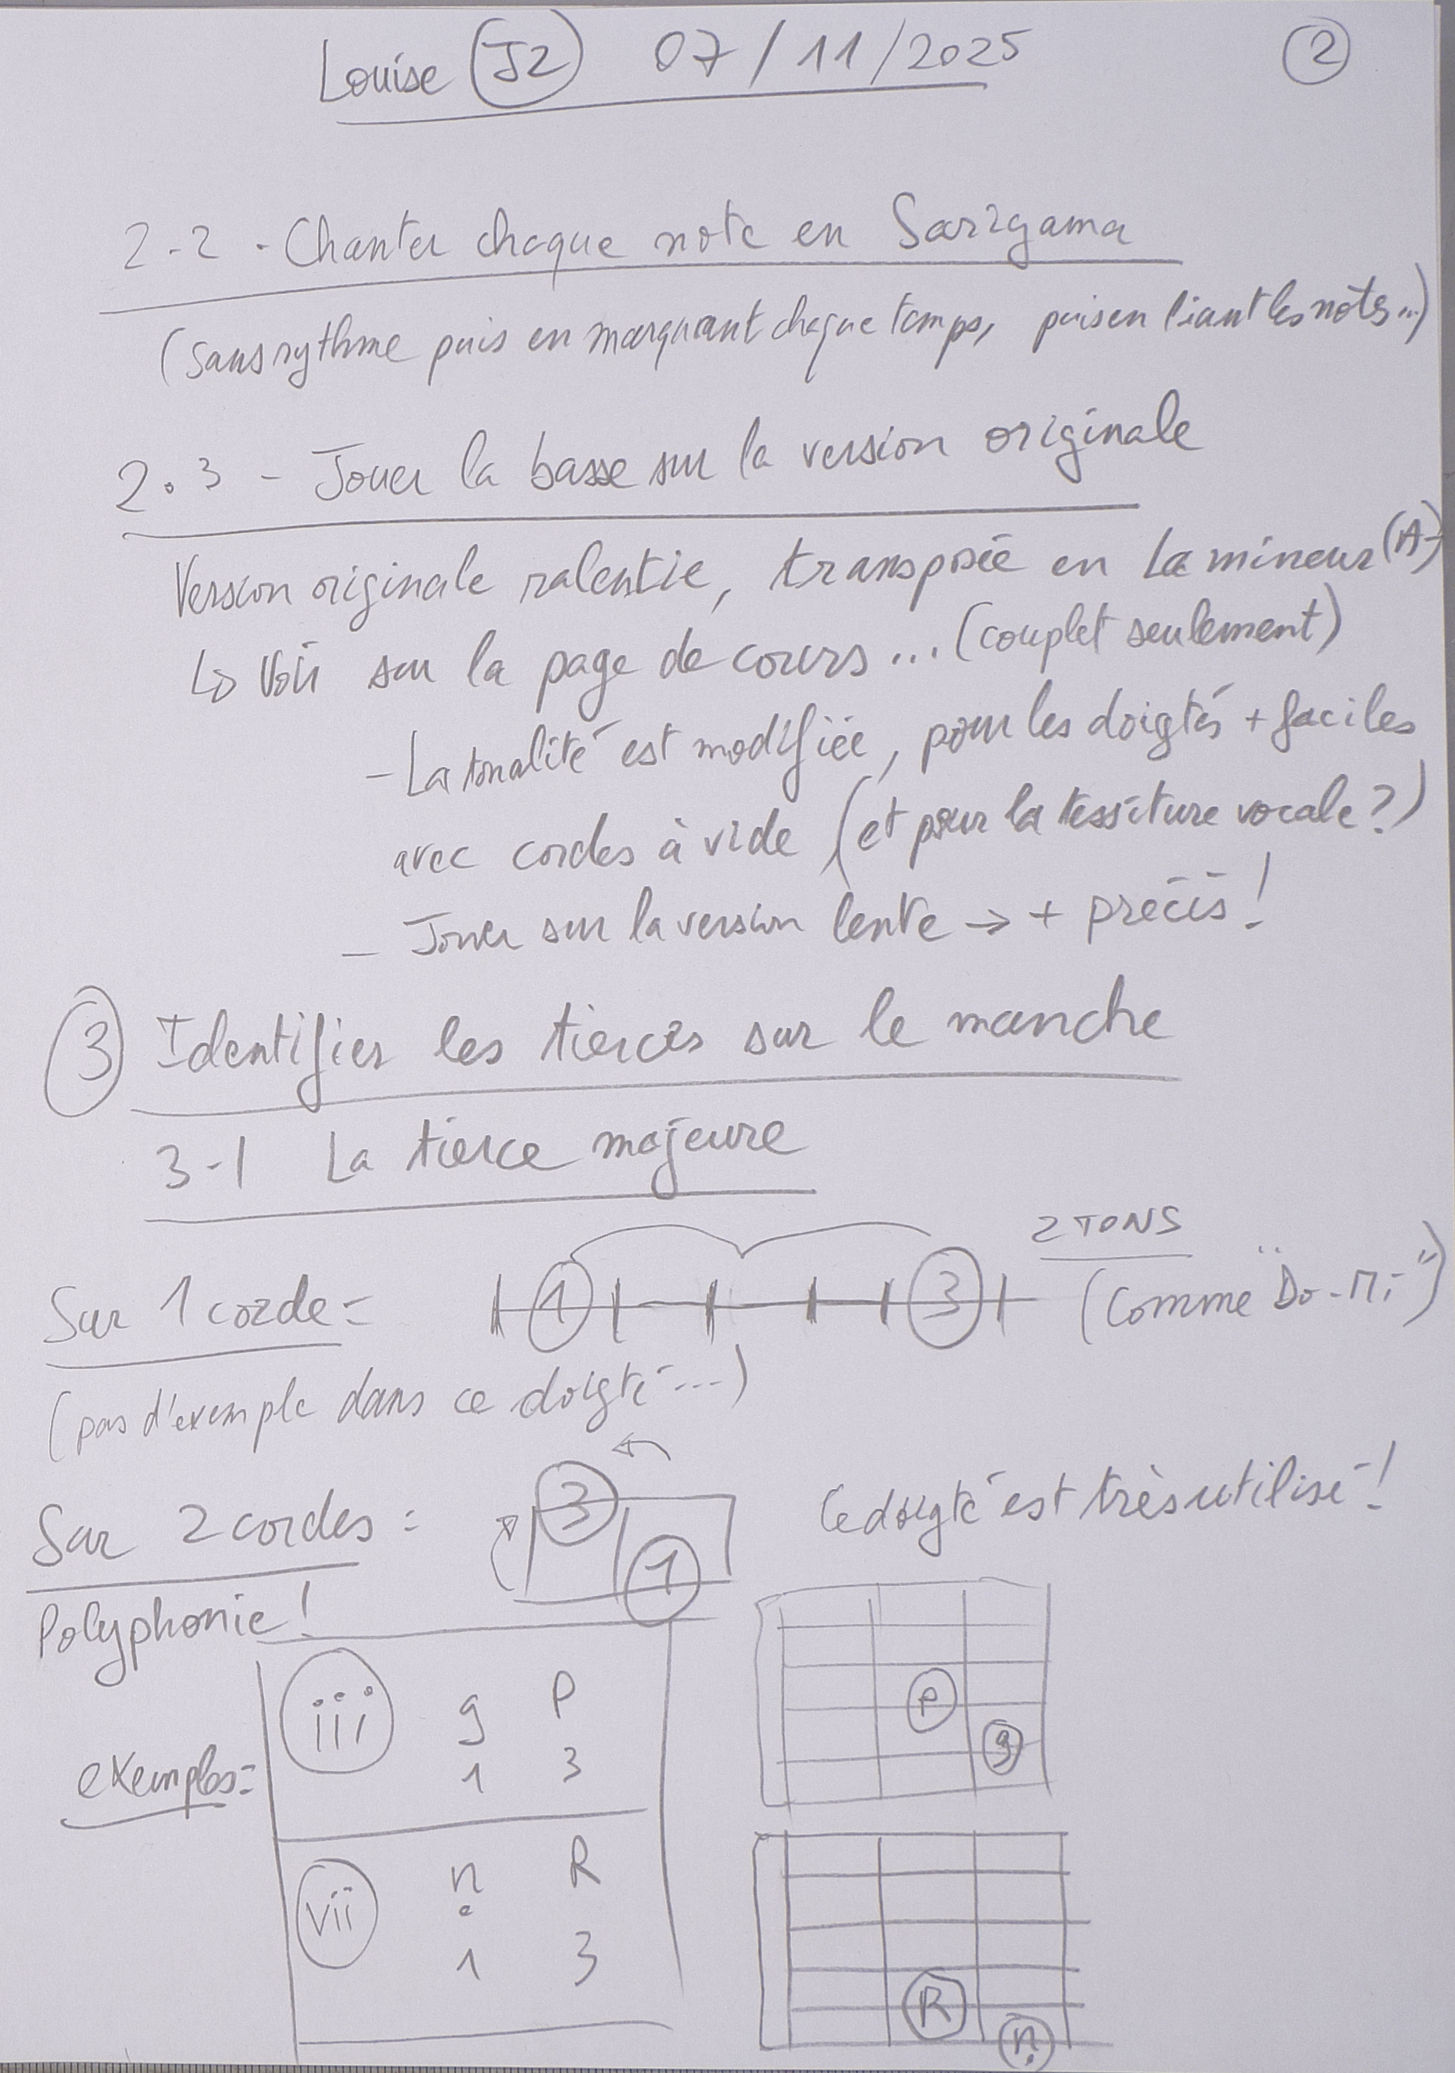 Louise J2 07/11/2025 2
2-2 - Chanter chaque note en Sarigama
(sans rythme puis en marquant chaque temps, puis en liant les notes...)
2.3 - Jouer la basse sur la version originale
Version originale ralentie, transposée en La mineur (A-)
↳ Voir sur la page de cours... (couplet seulement)
- La tonalité est modifiée, pour les doigtés + faciles
avec cordes à vide (et pour la tessiture vocale?)
- Jouer sur la version lente → + précis!
3 Identifier les tierces sur le manche
3-1 La tierce majeure
2 TONS
Sur 1 corde = 1 3 (Comme "Do-Mi")
(pas d'exemple dans ce doigté...)
Sur 2 cordes : 3 1 Ce doigté est très utilisé!
Polyphonie!
exemples =
iii g P
1 3
P
g
vii ṇ R
1 3
R
ṇ